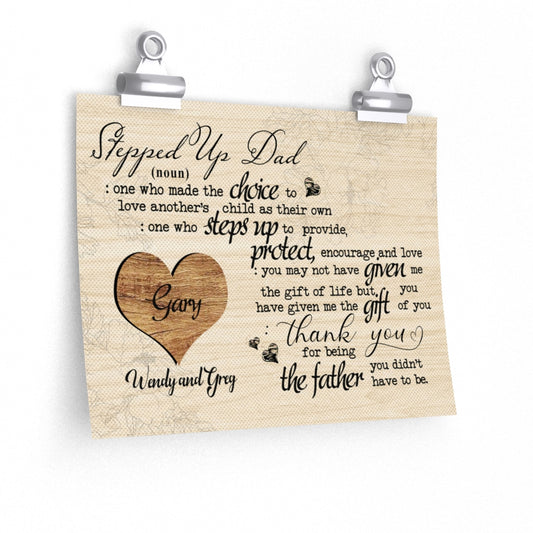 Stepped Up Dad
(noun)
: one who made the choice to
love another's child as their own
: one who steps up to provide,
protect, encourage and love
: you may not have given me
the gift of life but, you
have given me the gift of you
: thank you
for being
the father you didn't
have to be.
Gary
Wendy and Greg